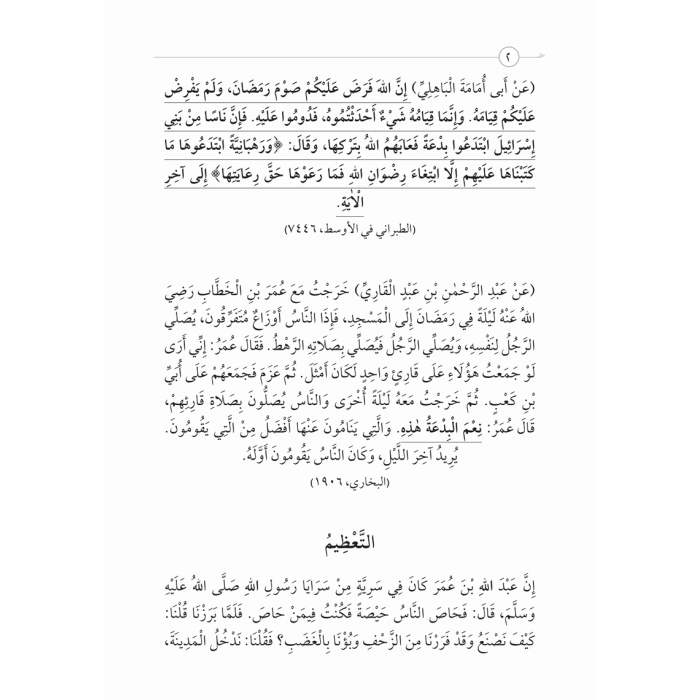 ٢
(عَنْ أَبِي أُمَامَةَ الْبَاهِلِيِّ) إِنَّ اللهَ فَرَضَ عَلَيْكُمْ صَوْمَ رَمَضَانَ، وَلَمْ يَفْرِضْ
عَلَيْكُمْ قِيَامَهُ. وَإِنَّمَا قِيَامُهُ شَيْءٌ أَحْدَثْتُمُوهُ، فَدُومُوا عَلَيْهِ. فَإِنَّ نَاسًا مِنْ بَنِي
إِسْرَائِيلَ ابْتَدَعُوا بِدْعَةً فَعَابَهُمُ اللهُ بِتَرْكِهَا، وَقَالَ: ﴿وَرَهْبَانِيَّةً ابْتَدَعُوهَا مَا
كَتَبْنَاهَا عَلَيْهِمْ إِلَّا ابْتِغَاءَ رِضْوَانِ اللهِ فَمَا رَعَوْهَا حَقَّ رِعَايَتِهَا﴾ إِلَى آخِرِ
الْآيَةِ.
(الطبراني في الأوسط، ٧٤٤٦)
(عَنْ عَبْدِ الرَّحْمٰنِ بْنِ عَبْدٍ الْقَارِيِّ) خَرَجْتُ مَعَ عُمَرَ بْنِ الْخَطَّابِ رَضِيَ
اللهُ عَنْهُ لَيْلَةً فِي رَمَضَانَ إِلَى الْمَسْجِدِ، فَإِذَا النَّاسُ أَوْزَاعٌ مُتَفَرِّقُونَ، يُصَلِّي
الرَّجُلُ لِنَفْسِهِ، وَيُصَلِّي الرَّجُلُ فَيُصَلِّي بِصَلَاتِهِ الرَّهْطُ. فَقَالَ عُمَرُ: إِنِّي أَرَى
لَوْ جَمَعْتُ هَؤُلَاءِ عَلَى قَارِئٍ وَاحِدٍ لَكَانَ أَمْثَلَ. ثُمَّ عَزَمَ فَجَمَعَهُمْ عَلَى أُبَيِّ
بْنِ كَعْبٍ. ثُمَّ خَرَجْتُ مَعَهُ لَيْلَةً أُخْرَى وَالنَّاسُ يُصَلُّونَ بِصَلَاةِ قَارِئِهِمْ،
قَالَ عُمَرُ: نِعْمَ الْبِدْعَةُ هٰذِهِ. وَالَّتِي يَنَامُونَ عَنْهَا أَفْضَلُ مِنْ الَّتِي يَقُومُونَ.
يُرِيدُ آخِرَ اللَّيْلِ، وَكَانَ النَّاسُ يَقُومُونَ أَوَّلَهُ.
(البخاري، ١٩٠٦)
التَّعْظِيمُ
إِنَّ عَبْدَ اللهِ بْنَ عُمَرَ كَانَ فِي سَرِيَّةٍ مِنْ سَرَايَا رَسُولِ اللهِ صَلَّى اللهُ عَلَيْهِ
وَسَلَّمَ، قَالَ: فَحَاصَ النَّاسُ حَيْصَةً فَكُنْتُ فِيمَنْ حَاصَ. فَلَمَّا بَرَزْنَا قُلْنَا:
كَيْفَ نَصْنَعُ وَقَدْ فَرَرْنَا مِنَ الزَّحْفِ وَبُؤْنَا بِالْغَضَبِ؟ فَقُلْنَا: نَدْخُلُ الْمَدِينَةَ،